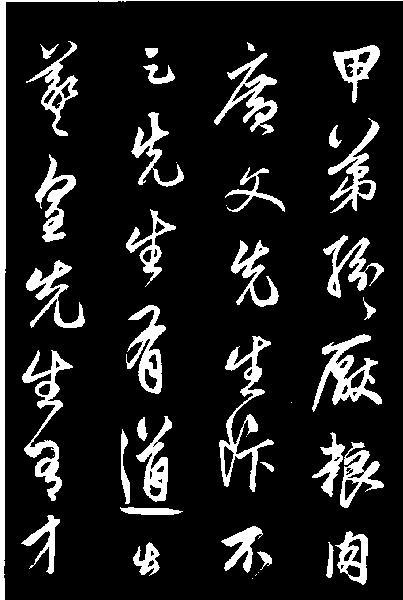 甲第紛々厭粱肉
廣文先生飯不
足先生有道出
羲皇先生有才